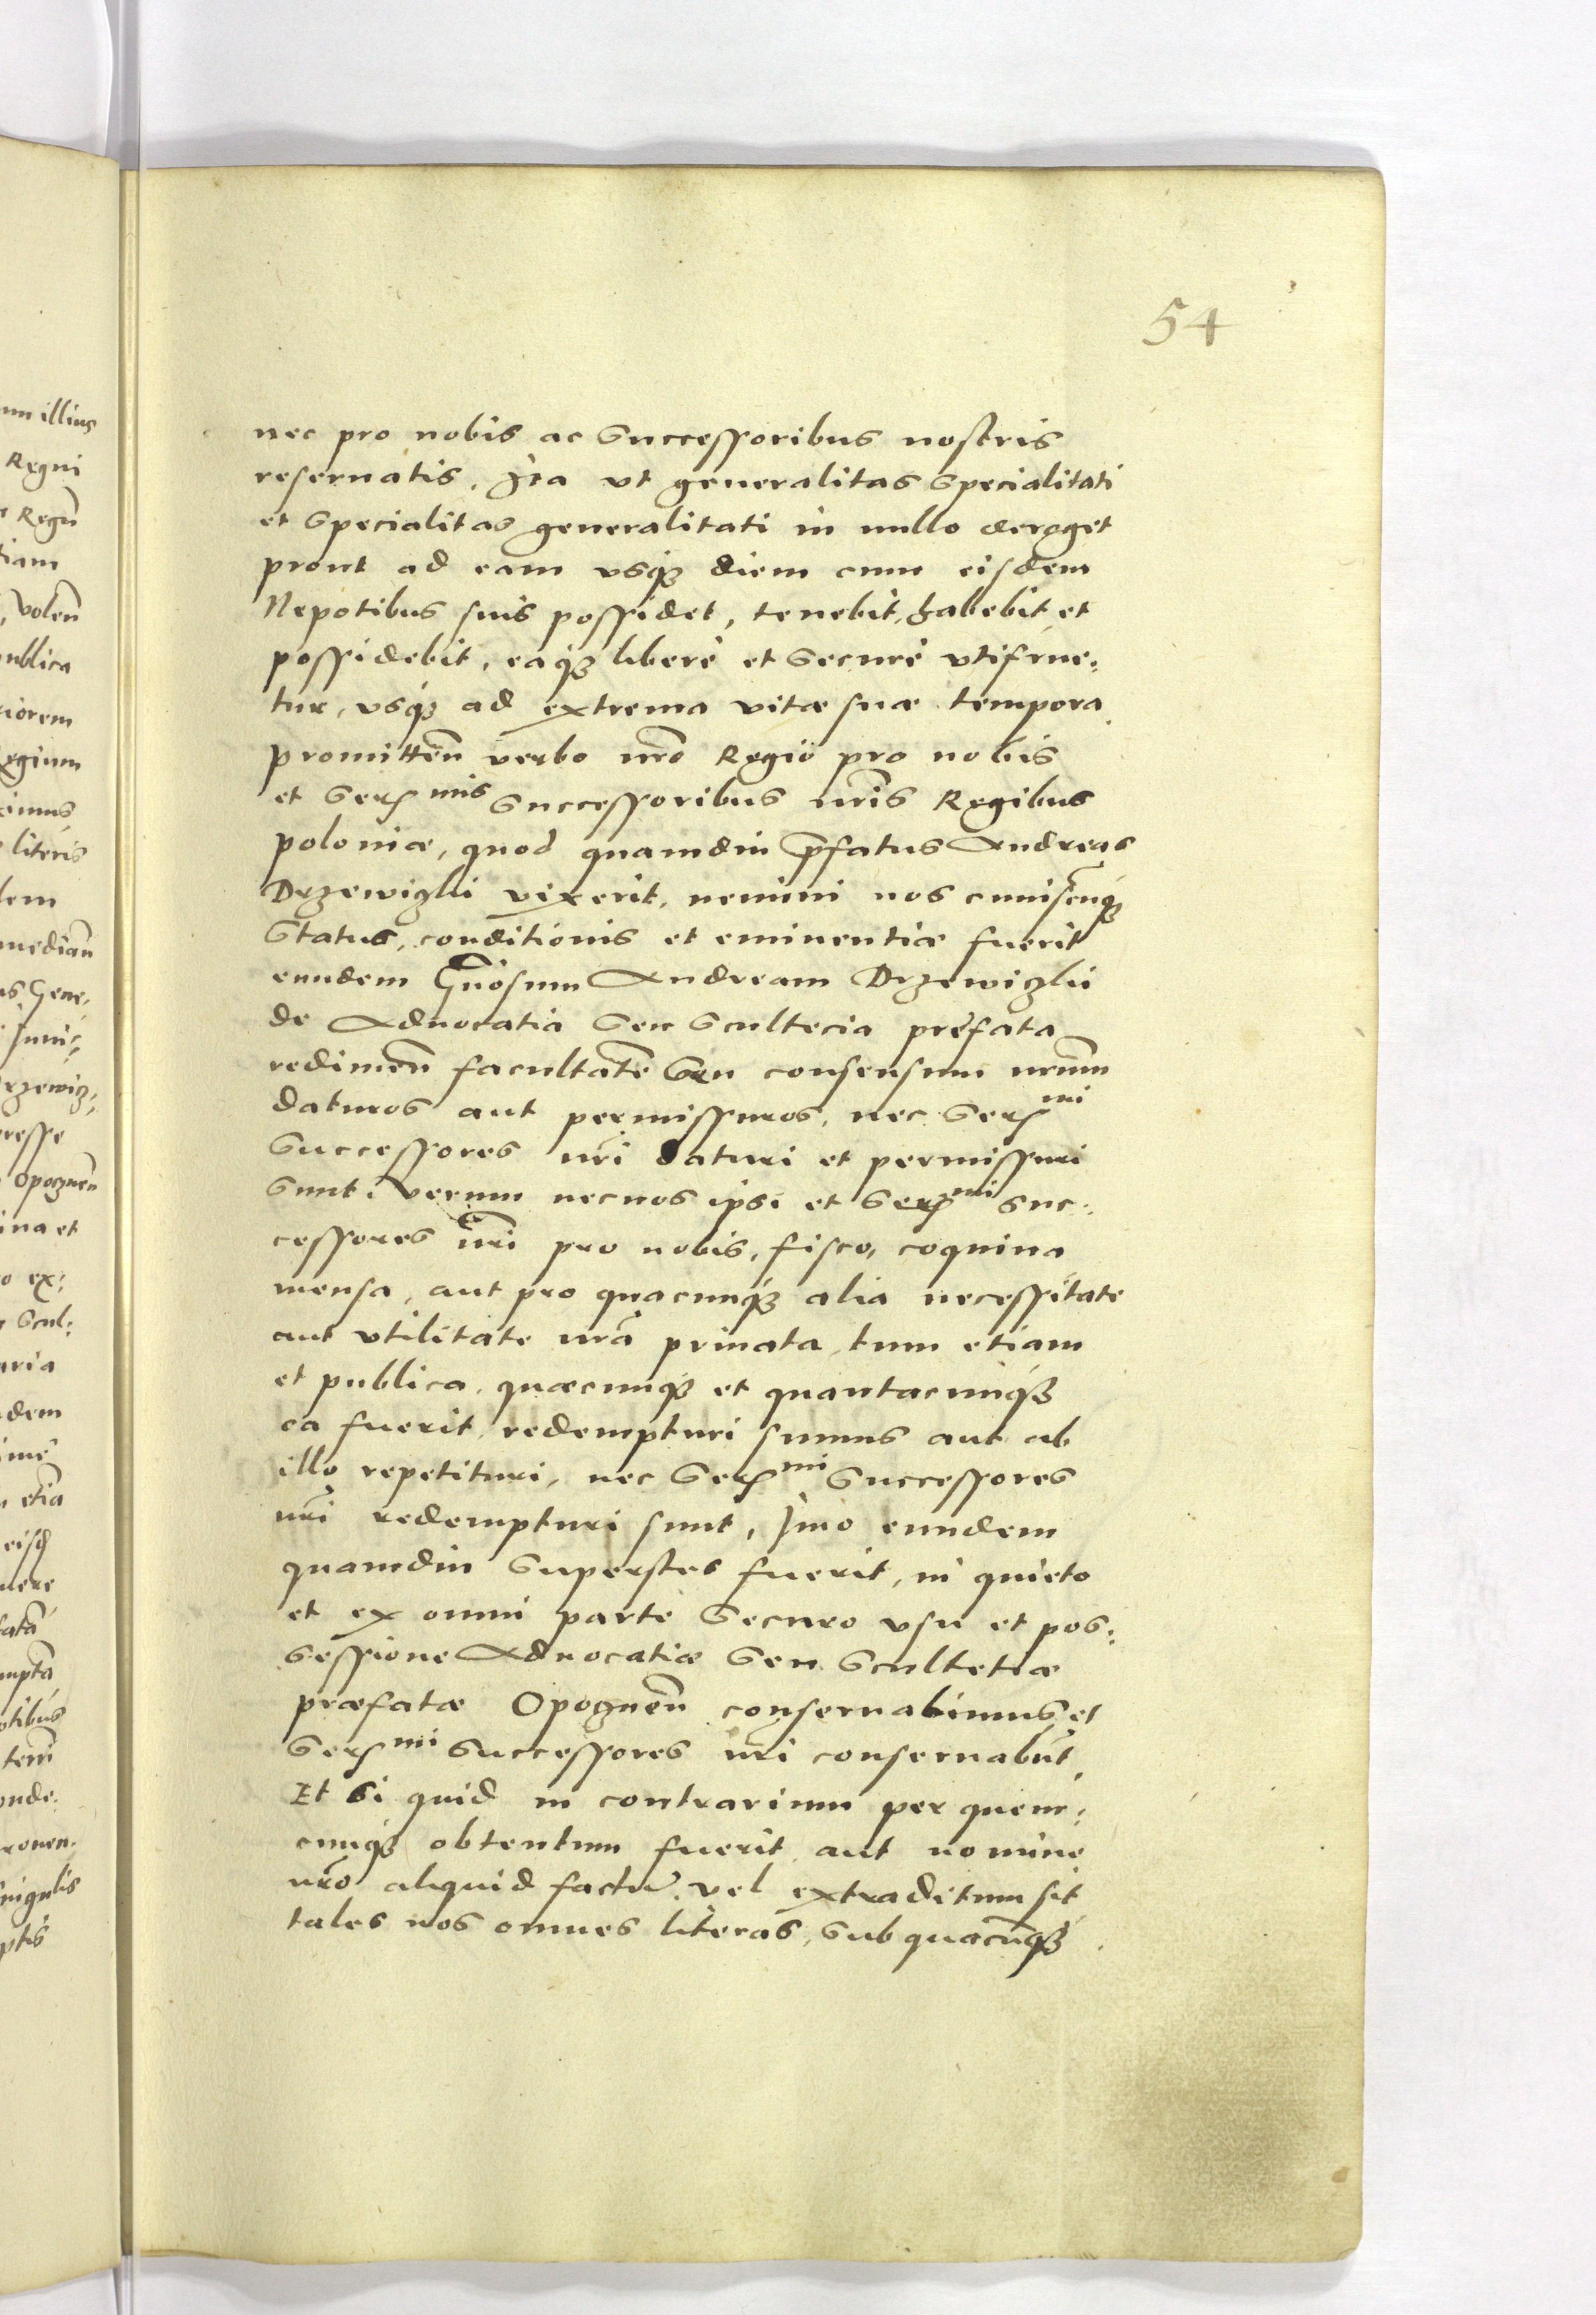 54
nec pro nobis ac Successoribus nostris
reseruatis. Ita vt generalitas Specialitati
et Specialitas generalitati in nullo deroget
prout ad eam vsqꝫ diem cum eisdem
Nepotibus suis possidet, tenebit, habebit et
possidebit, eaqꝫ liberè et Securè vtifrue:
tur, vsqꝫ ad extrema vitæ suæ tempora
promitteñ verbo nr̃o Regiö pro nobis
et Serꝭ mis Successoribus nr̃is Regibus
poloniæ, quod quamdiu p̃fatus Andreas
Drzewiczki vixerit, nemini nos cuiuscũqꝫ
Status, conditionis et eminentiæ fuerit
eundem Gñosum Andream Drzewiczki
de Aduocatia Seu Scultecia prefata
redimeñ facultatẽ Seu consensum nr̃um
daturos aut permissuros, nec Serꝭ mi
Successores nr̃i daturi et permissuri
Sunt. verum nec nos ipsi et Serꝭ mi Suc:
cessores nr̃i pro nobis, fisco, coquina
mensa, aut pro quacunqꝫ alia necessitate
aut vtilitate nr̃a priuata, tum etiam
et publica, quæcunqꝫ et quantacunqꝫ
ea fuerit redempturi sumus aut ab
illo repetituri, nec Serꝭ mi Successores
nr̃i redempturi sunt, Imo eundem
quamdiu Superstes fuerit, in quieto
et ex omni parte Securo vsu et pos:
sessione Aduocatiæ Seu Scultetiæ
præfatæ Opoczneñ conseruabimus et
Serꝭ mi Successores nr̃i conseruabũt.
Et Si quid in contrarium per quem:
cunqꝫ obtentum fuerit aut nomine
nr̃o aliquid factũ vel extraditum sit
tales nos omnes literas, Sub quacũqꝫ